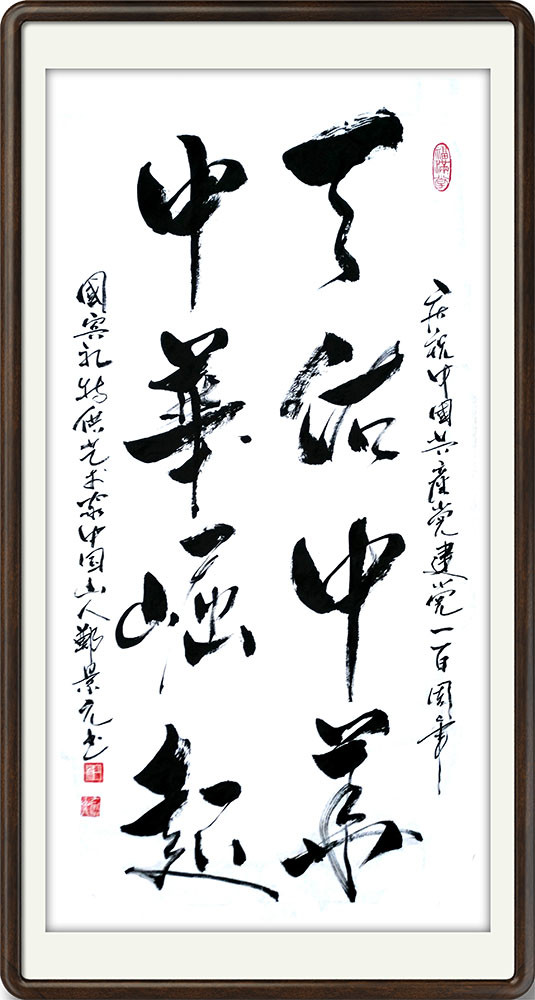 庆祝中国共產党建党一百周年
天佑中华
中華崛起
國宾礼特供艺术家中国山人鄞景元书
福满堂